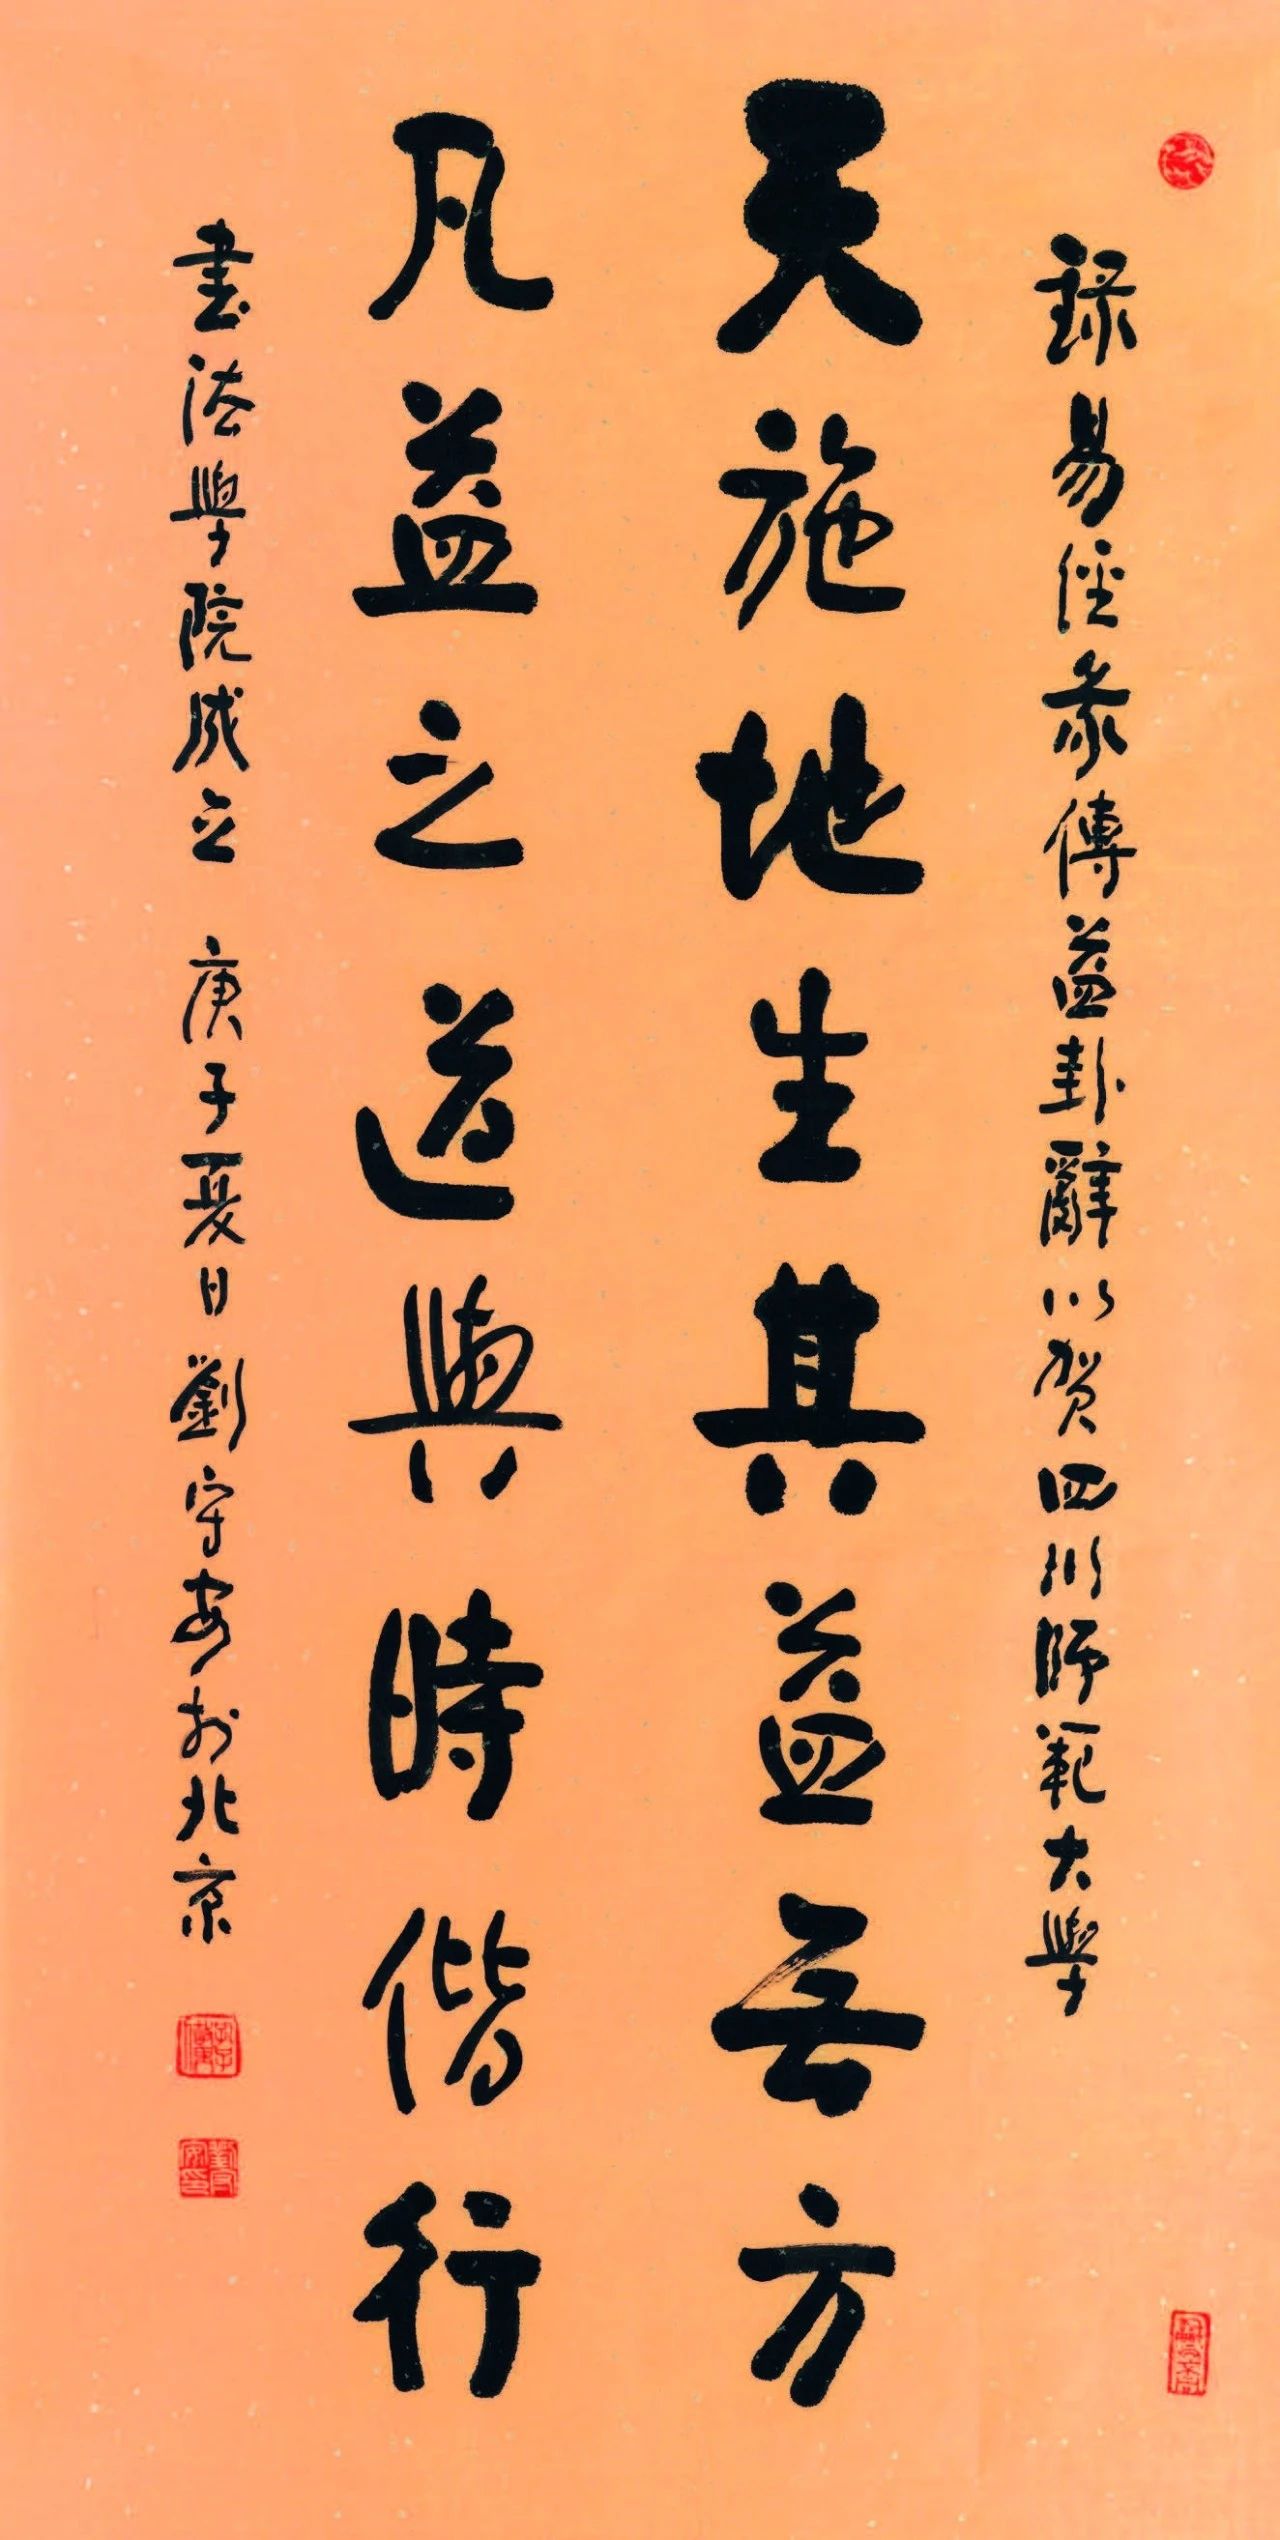 録易經彖傳益卦辭以贺四川師範大學
天施地生其益无方
凡益之道與時偕行
書法學院成立 庚子夏日劉守安於北京
劉守安印